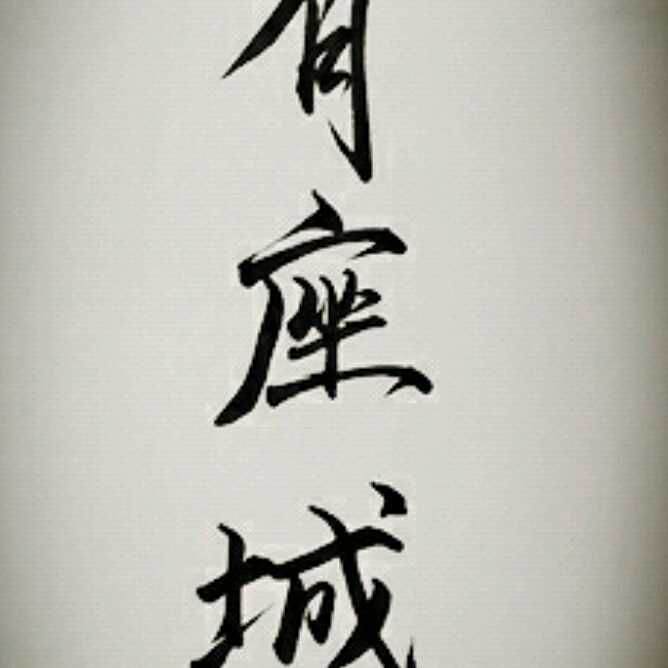 有座城